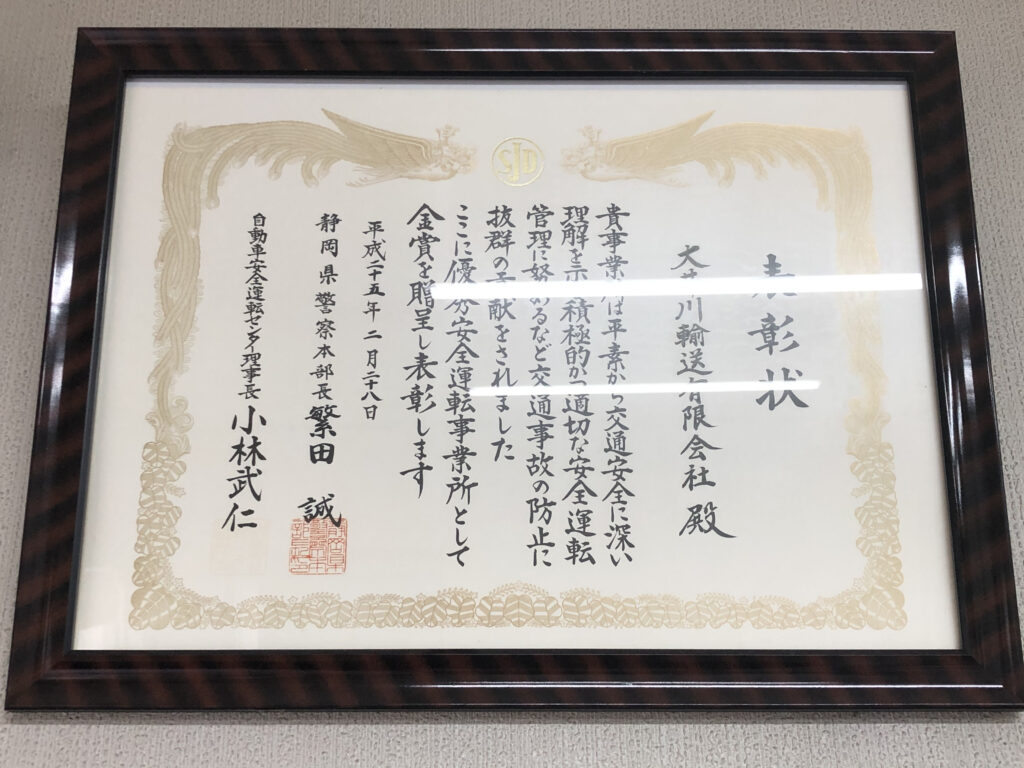 表彰状
大井川輸送有限会社 殿
貴事業所は平素から交通安全に深い
理解を示し積極的かつ適切な安全運転
管理に努めるなど交通事故の防止に
抜群の貢献をされました
ここに優秀安全運転事業所として
金賞を贈呈し表彰します
平成二十五年 二月二十八日
静岡県警察本部長 繁田 誠
自動車安全運転センター理事長 小林武仁
SJD